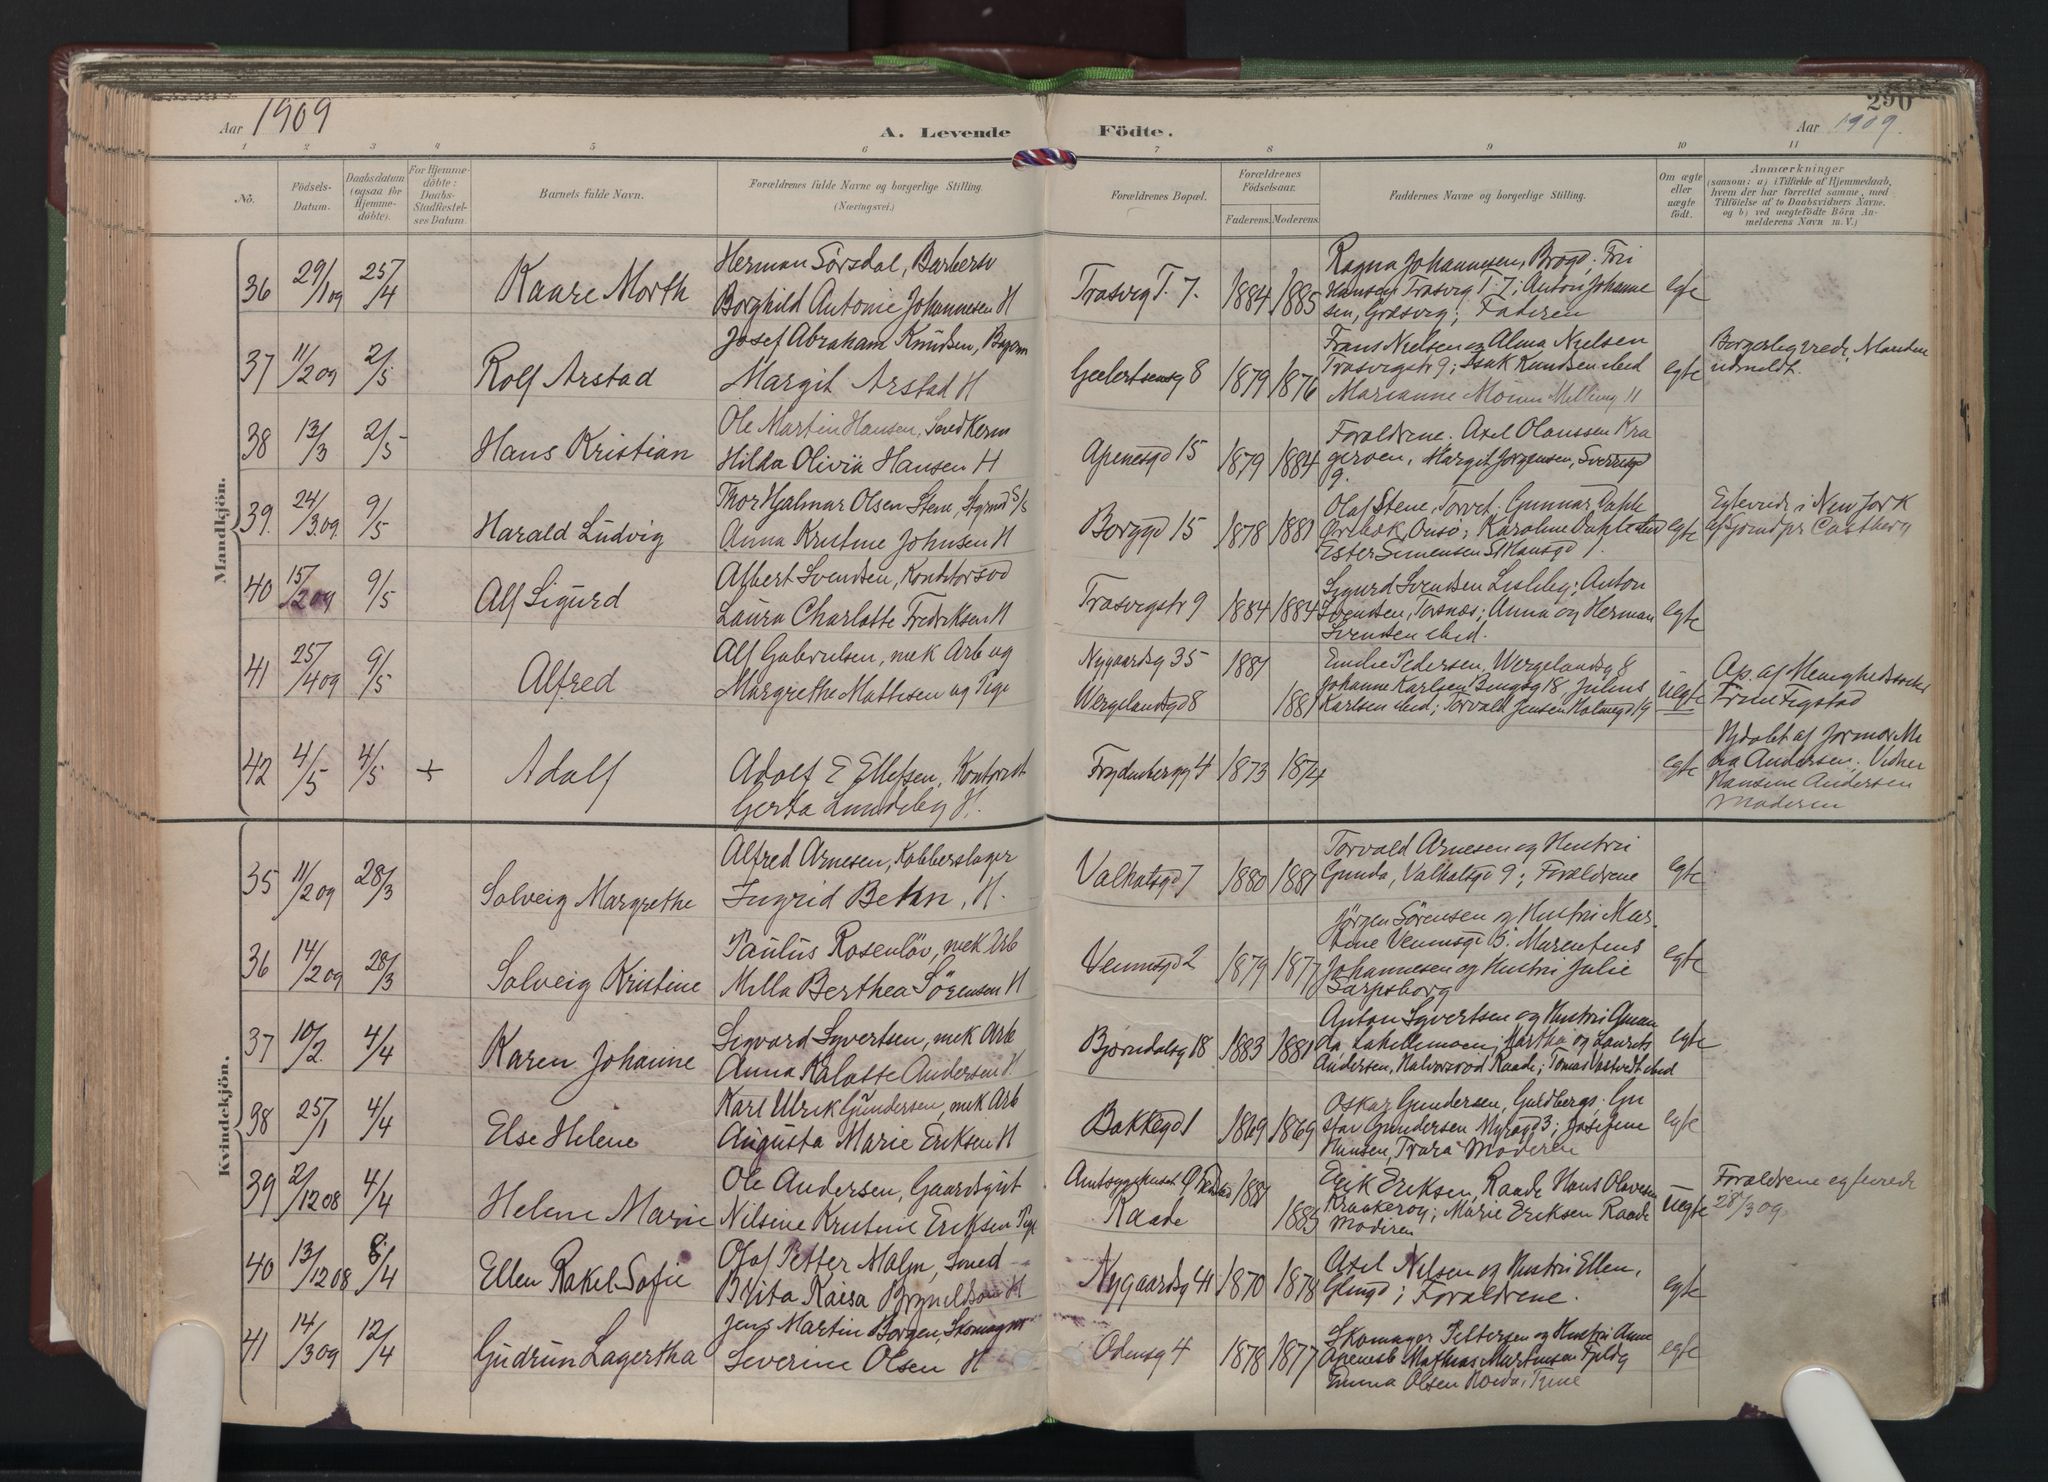 290
Aar 1909
A. Levende Födte.
Aar 1909.
1 2 3 4 5 6 7 8 9 10 11
No.
Födsels-
Datum.
Daabsdatum
(ogsaa for
Hjemme-
döbte).
For Hjemme-
döbte:
Daabs-
Stadfæstel-
ses Datum.
Barnets fulde Navn.
Forældrenes fulde Navne og borgerlige Stilling.
(Næringsvei.)
Forældrenes Bopæl.
Forældrenes
Födselsaar.
Faderens. Moderens.
Faddernes Navne og borgerlige Stilling.
Om ægte
eller
uægte
födt.
Anmærkninger
(saasom: a) i Tilfælde af Hjemmedaab,
hvem der har forrettet samme, med
Tilföielse af to Daabsvidners Navne.
og b) ved uegtefödte Börn An-
melderens Navn m. V.)
Mandkjön.
36 29/1 09 25/4 Kaare Morth
Herman Sørsdal, Barbersv
Borghild Antonie Johannesen H
Trosvig T. 7. 1884 1885
Ragna Johannesen, Brogd, Fri
Hansen Trosvig T. 7; Anton Johanne
sen, Græsvig; Faderen
egte
37 11/2 09 2/5 Rolf Arstad
Josef Abraham Knudsen,
Margit Arstad H
Geelertsensg 8 1879 1876
Frans Nielsen og Alma Nielsen
Trosvigstr 9; Isak Knudsen ibid
Marianne
egte
Borgerlig viede, Manden
udmeldt.
38 13/3 2/5 Hans Kristian
Ole Martin Hansen, Smed
Hilda Olivia Hansen H
Apenesgd 15 1879 1884
Forældrene. Axel Olaussen Kra
gerøen, Margit Jørgensen, Sverresgd
9.
39. 24/3 09 9/5 Harald Ludvig
Thor Hjalmar Olsen Stene, Styrmd S/S
Anna Kristine Johnsen H
Borggd 15 1878 1881
Olaf Stene, Torvet. Gunnar Dahle
Ørebæk, Onsø; Karoline Dahle ibid
Ester Simensen St Hansgd 1.
egte
Egteviede i New York
af Sjömdpr Castberg
40 15/2 09 9/5 Alf Sigurd
Albert Svendsen, Konditorsvd
Laura Charlotte Fredriksen H
Trosvigstr 9 1884 1884
Sigurd Svendsen Lisleby; Anton
Svendsen, Torsnæs; Anna og Herman
Svendsen ibid.
egte
41 25/4 09 9/5 Alfred
Alf Gabrielsen, mek Arb ug
Margrethe Mathisen ug Pige
Nygaardsg 35 1881
Wergelandsgd 8 1881
Emilie Pedersen, Wergelandsg 8
Johanne Karlsen Bengsg 18, Julius
Karlsen ibid; Torvald Jensen Holmegd 19
uegte
Ap. af Menighedssøster
Trine Tigstad
42 4/5 4/5 + Adolf
Adolf E Ellefsen, Kontorist
Gerda Lundeby H.
Frydenbergg 4 1873 1874
egte
Hjdøbt af Jormor
Andersen; Vidner
Hansine Andersen
Moderen
Kvindekjön.
35 11/2 09 28/3 Solveig Margrethe
Alfred Arnesen, Kobberslager
Ingrid Behn, H.
Valhalsgd 7 1880 1881
Torvald Arnesen og Hustru
Gunda, Valhalsgd 9; Forældrene
egte
36 14/2 09 28/3 Solveig Kristine
Paulus Rosenløv, mek Arb
Milla Berthea Sörensen H
Vennsgd 2 1879 1877
Jörgen Sörensen og Hustru Mar-
tine Vennsgd 13. Marentius
Johannesen og Hustru Julie
Sarpsborg
egte
37 10/2 4/4 Karen Johanne
Sigvard Syvertsen, mek Arb
Anna Kalotte Andersen H.
Bjørndalsg 18 1883 1881
Anton Syvertsen og Hustru Aman
da Lahellemoen; Martha og Laurits
Andersen, Halvorsrød Raade; Tomas Vastvedt ibid
egte
38 25/1 4/4 Else Helene
Karl Ulrik Gundersen, mek Arb
Augusta Marie Eriksen H
Bakkegd 1 1869 1869
Oskar Gundersen, Guldbergs. Gu
stav Gundersen Myragd 3; Josefine
Hansen, Trara Moderen
egte
39 2/12 08 4/4 Helene Marie
Ole Andersen, Gaardsgut
Nilsine Kristine Eriksen Pige
Raade 1881
1883
Erik Eriksen, Raade Hans Olavesen
Kraakerøg; Marie Eriksen Raade
Moderen
uegte
Forældrene egteviede
28/3 09.
40 13/12 08 8/4 Ellen Rakel Sofie
Olof Petter Malm, Smed
Brita Kaisa Bryneldson H
Nygaardsg 41 1870 1878
Axel Nilsen og Hustru Ellen,
Glengd; Forældrene.
egte
41 14/3 09 12/4 Gudrun Lagertha
Jens Martin Borgen, Skomagr
Severine Olsen H
Odensg 4 1878 1877
Skomager Pettersen og Hustru Anne
Apenesb Mathias Martinsen
Emma Olsen
egte